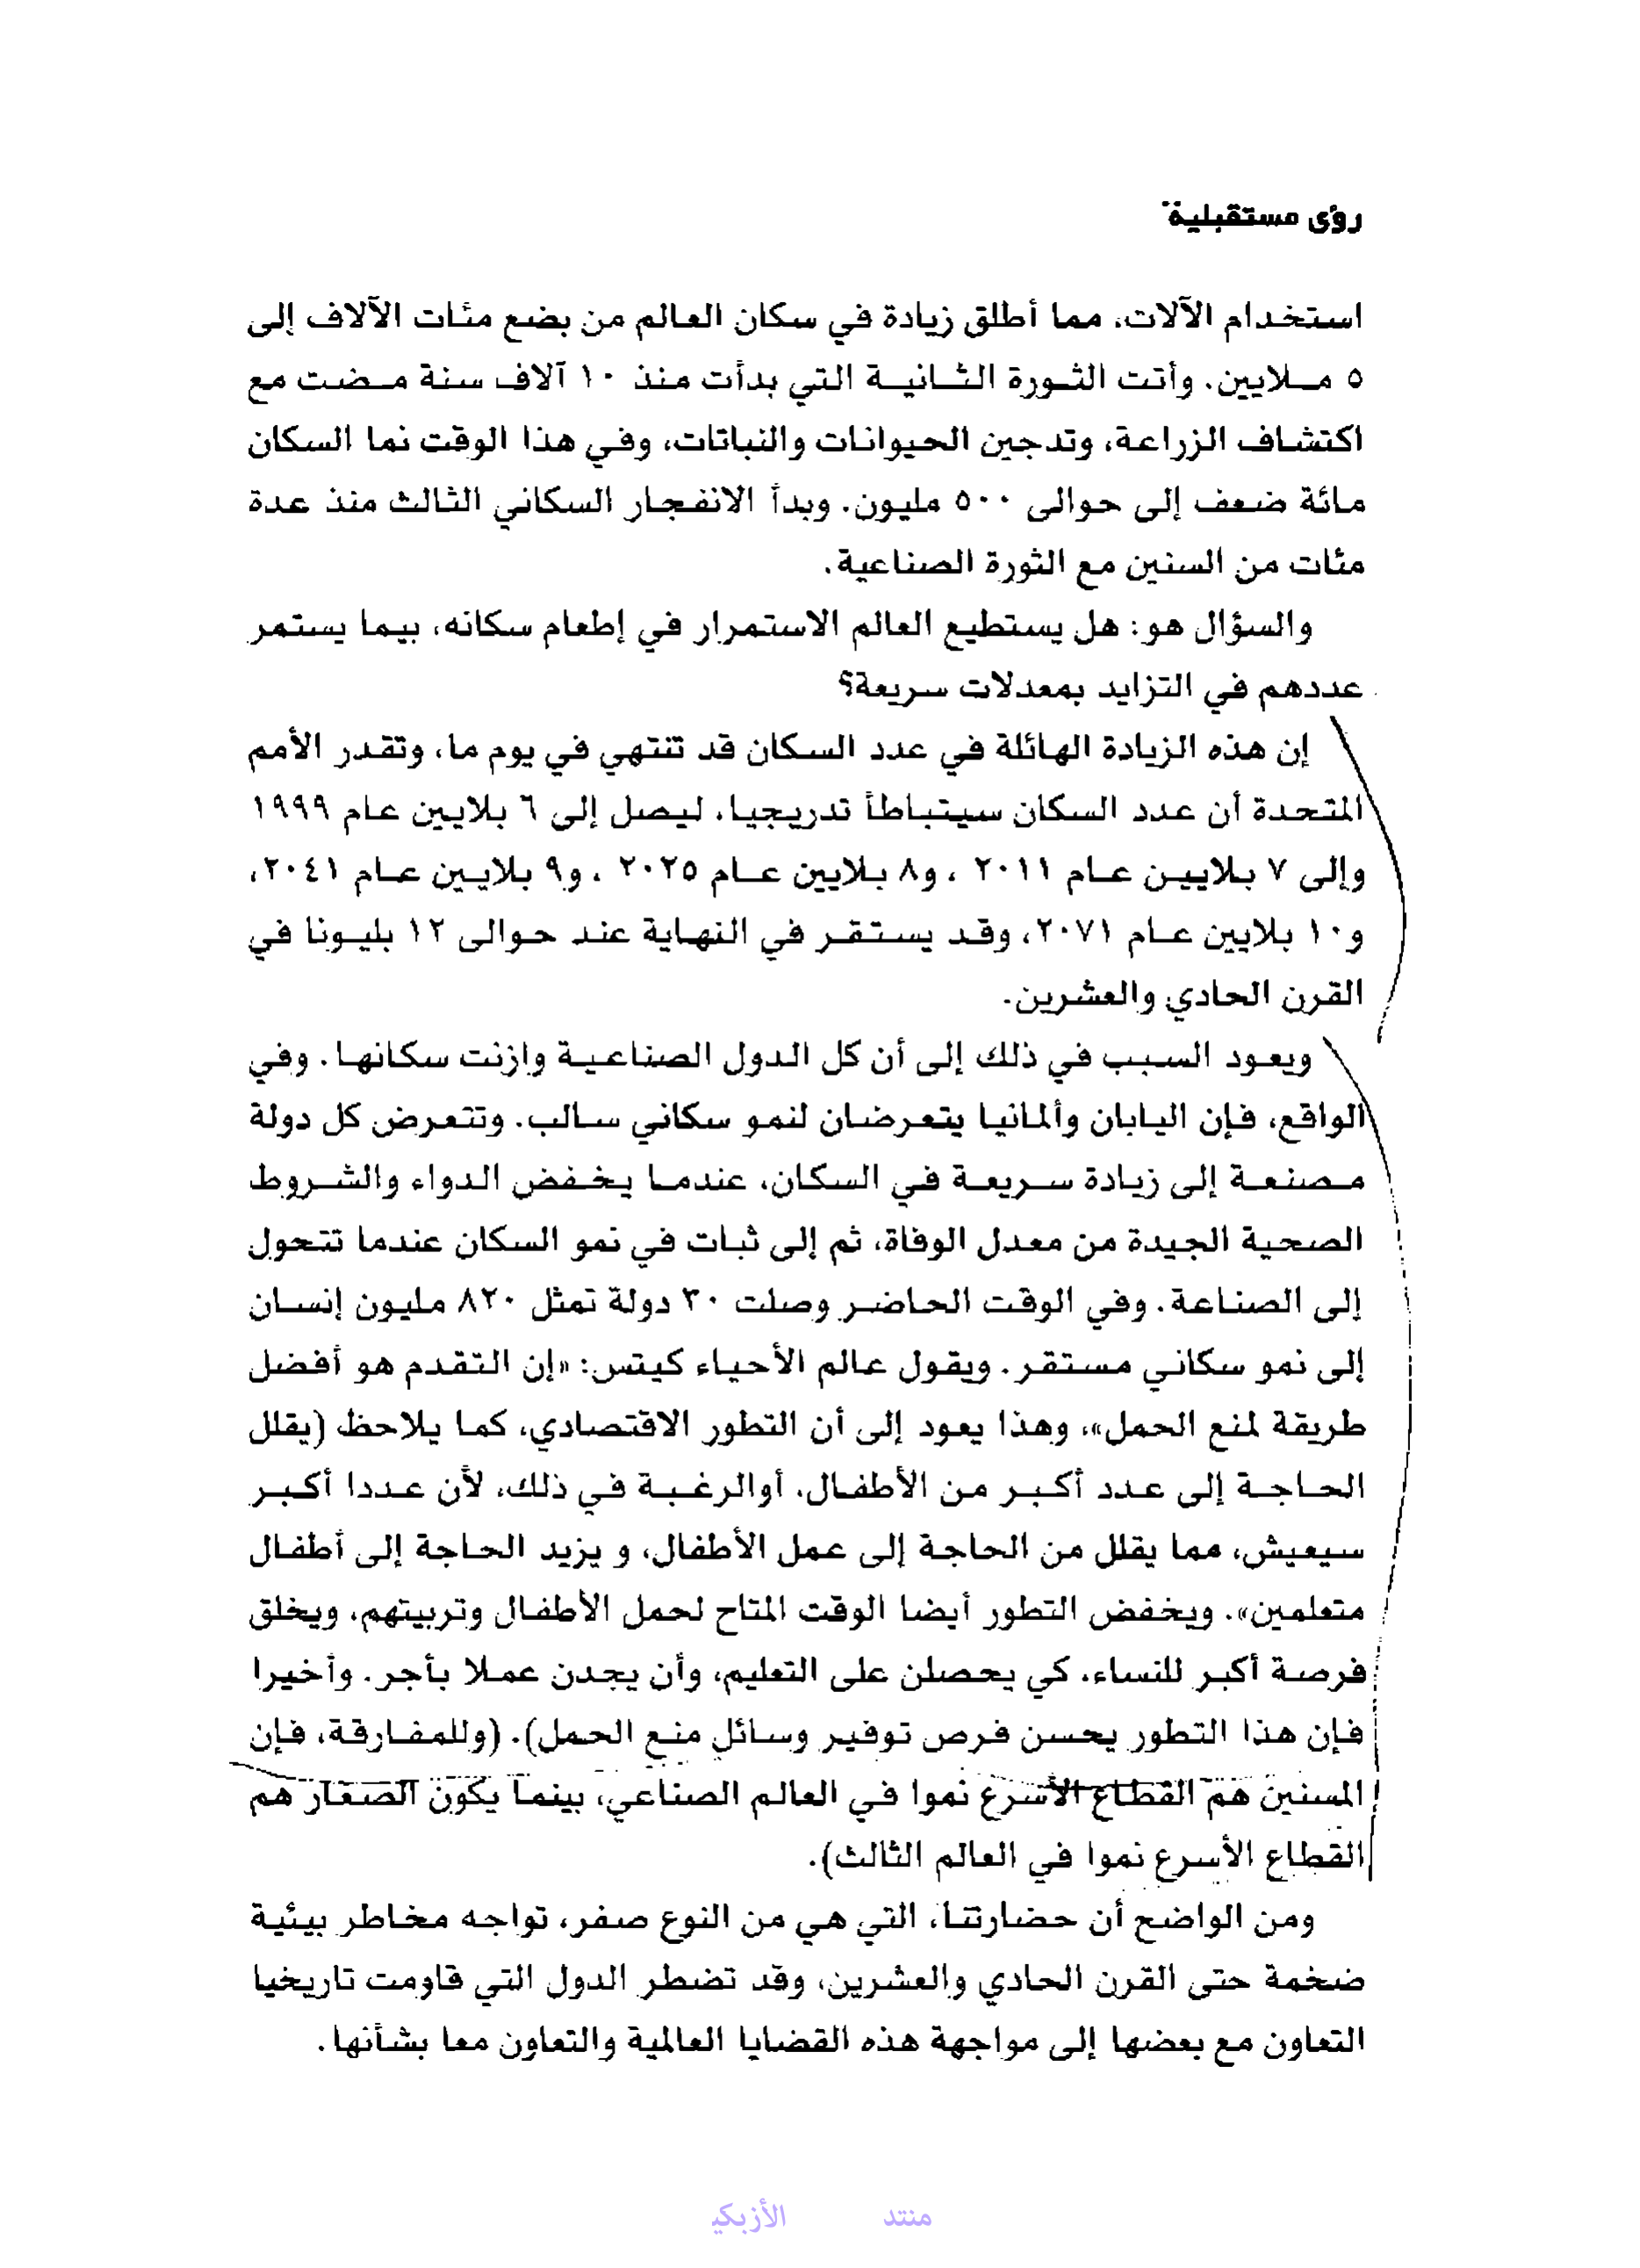 رؤى مستقبلية
استخدام الآلات، مما أطلق زيادة في سكان العالم من بضع مئات الآلاف إلى
٥ مـلايين. وأتت الثـورة الثـانيـة التي بدأت منذ ١٠ آلاف سنة مـضت مع
اكتشاف الزراعة، وتدجين الحيوانات والنباتات، وفي هذا الوقت نما السكان
مائة ضعف إلى حوالى ٥٠٠ مليون. وبدأ الانفجار السكاني الثالث منذ عدة
مئات من السنين مع الثورة الصناعية.
والسؤال هو: هل يستطيع العالم الاستمرار في إطعام سكانه، بيما يستمر
عددهم في التزايد بمعدلات سريعة؟
إن هذه الزيادة الهائلة في عدد السكان قد تنتهي في يوم ما، وتقدر الأمم
المتحدة أن عدد السكان سيتباطأ تدريجيا، ليصل إلى ٦ بلايين عام ١٩٩٩
وإلى ٧ بلايين عـام ٢٠١١ ، و٨ بلايين عـام ٢٠٢٥ ، و٩ بلايين عـام ٢٠٤١،
و١٠ بلايين عـام ٢٠٧١، وقـد يسـتقـر في النهـاية عند حـوالى ١٢ بليـونا في
القرن الحادي والعشرين.
ويعود السبب في ذلك إلى أن كل الدول الصناعيـة وازنت سكانهـا. وفي
الواقع، فإن اليابان وألمانيا يتعرضان لنمو سكاني سالب. وتتعرض كل دولة
مـصنعـة إلى زيادة سـريعـة في السكان، عندمـا يخـفض الدواء والشـروط
الصحية الجيدة من معدل الوفاة، ثم إلى ثبات في نمو السكان عندما تتحول
إلى الصناعة. وفي الوقت الحاضر وصلت ٣٠ دولة تمثل ٨٢٠ مليون إنسان
إلى نمو سكاني مستقر. ويقول عالم الأحياء كيتس: «إن التقدم هو أفضل
طريقة لمنع الحمل»، وهذا يعود إلى أن التطور الاقتصادي، كما يلاحظ (يقلل
الحـاجـة إلى عـدد أكـبـر من الأطفـال، أوالرغـبـة في ذلك، لأن عـددا أكـبـر
سيعيش، مما يقلل من الحاجة إلى عمل الأطفال، و يزيد الحاجة إلى أطفال
متعلمين». ويخفض التطور أيضا الوقت المتاح لحمل الأطفال وتربيتهم، ويخلق
فرصة أكبر للنساء، كي يحصلن على التعليم، وأن يجدن عملا بأجر. وأخيرا
فإن هذا التطور يحسن فرص توفير وسائل منع الحمل). (وللمفارقة، فإن
المسنين هم القطاع الأسرع نموا في العالم الصناعي، بينما يكون الصغار هم
القطاع الأسرع نموا في العالم الثالث).
ومن الواضح أن حضارتنا، التي هي من النوع صفر، تواجه مخاطر بيئية
ضخمة حتى القرن الحادي والعشرين، وقد تضطر الدول التي قاومت تاريخيا
التعاون مع بعضها إلى مواجهة هذه القضايا العالمية والتعاون معا بشأنها.
منتد الأزبكي